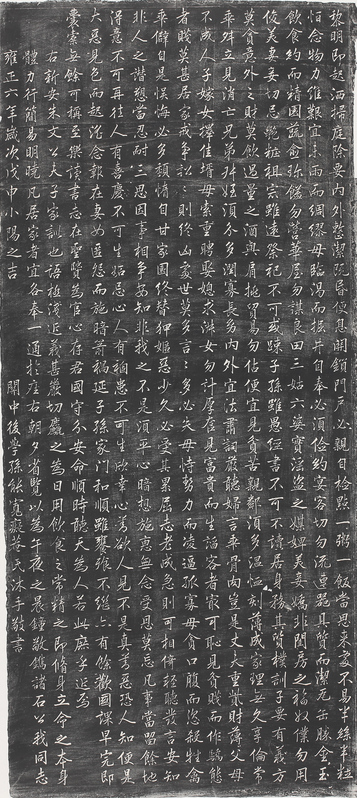 黎明即起洒掃庭除要內外整潔既昏便息關鎖門戶必親自檢點一粥一飯當思來處不易半絲半粒
恒念物力維艱宜未雨而綢繆毋臨渴而掘井自奉必須儉約宴客切勿流連器具質而潔瓦缶勝金玉
飲食約而精園蔬愈珍饈勿營華屋勿謀良田三姑六婆實淫盜之媒婢美妾嬌非閨房之福奴僕勿用
俊美妻妾切忌艷粧祖宗雖遠祭祀不可不誠子孫雖愚經書不可不讀居身務其質樸訓子要有義方
莫貪意外之財莫飲過量之酒與肩挑貿易勿佔便宜見貧苦親鄰須多溫恤刻薄成家理無久享倫常
乖舛立見消亡兄弟叔姪須分多潤寡長幼內外宜法肅詞嚴聽婦言乖骨肉豈是丈夫重貲財薄父母
不成人子嫁女擇佳壻毋索重聘娶媳求淑女勿計厚奩見富貴而生諂容者最可恥見貧賤而作驕態
者賤莫甚居家戒爭訟訟則終凶處世莫多言言多必失毋恃勢力而凌逼孤寡毋貪口腹而恣殺牲禽
乖僻自是悮悔必多頹惰自甘家園終替狎昵惡少久必受其累屈志老成急則可相倚輕聽發言安知
非人之譖愬當忍耐三思因事相爭安知非我之不是須平心暗想施惠無念受恩莫忘凡事當留餘地
得意不可再往人有喜慶不可生妬忌心人有禍患不可生欣幸心善欲人見不是真善惡恐人知便是
大惡見色而起淫念報在妻女匿怨而施暗箭禍延子孫家門和順雖饔飧不繼亦有餘歡國課早完即
囊橐無餘可稱至樂讀書志在聖賢為官心存君國守分安命順時聽天為人若此庶乎近焉
右新安朱文公夫子家訓也語極淺近義甚嚴切麤之為日用飲食之常精之即脩身立命之本身
體力行簡易明曉凡居家者宜各奉一通於座右朝夕省覽以為午夜之晨鐘敬鐫諸石公我同志
雍正六年歲次戊申小陽之吉 關中後學孫能寬癡菴氏沐手敬書